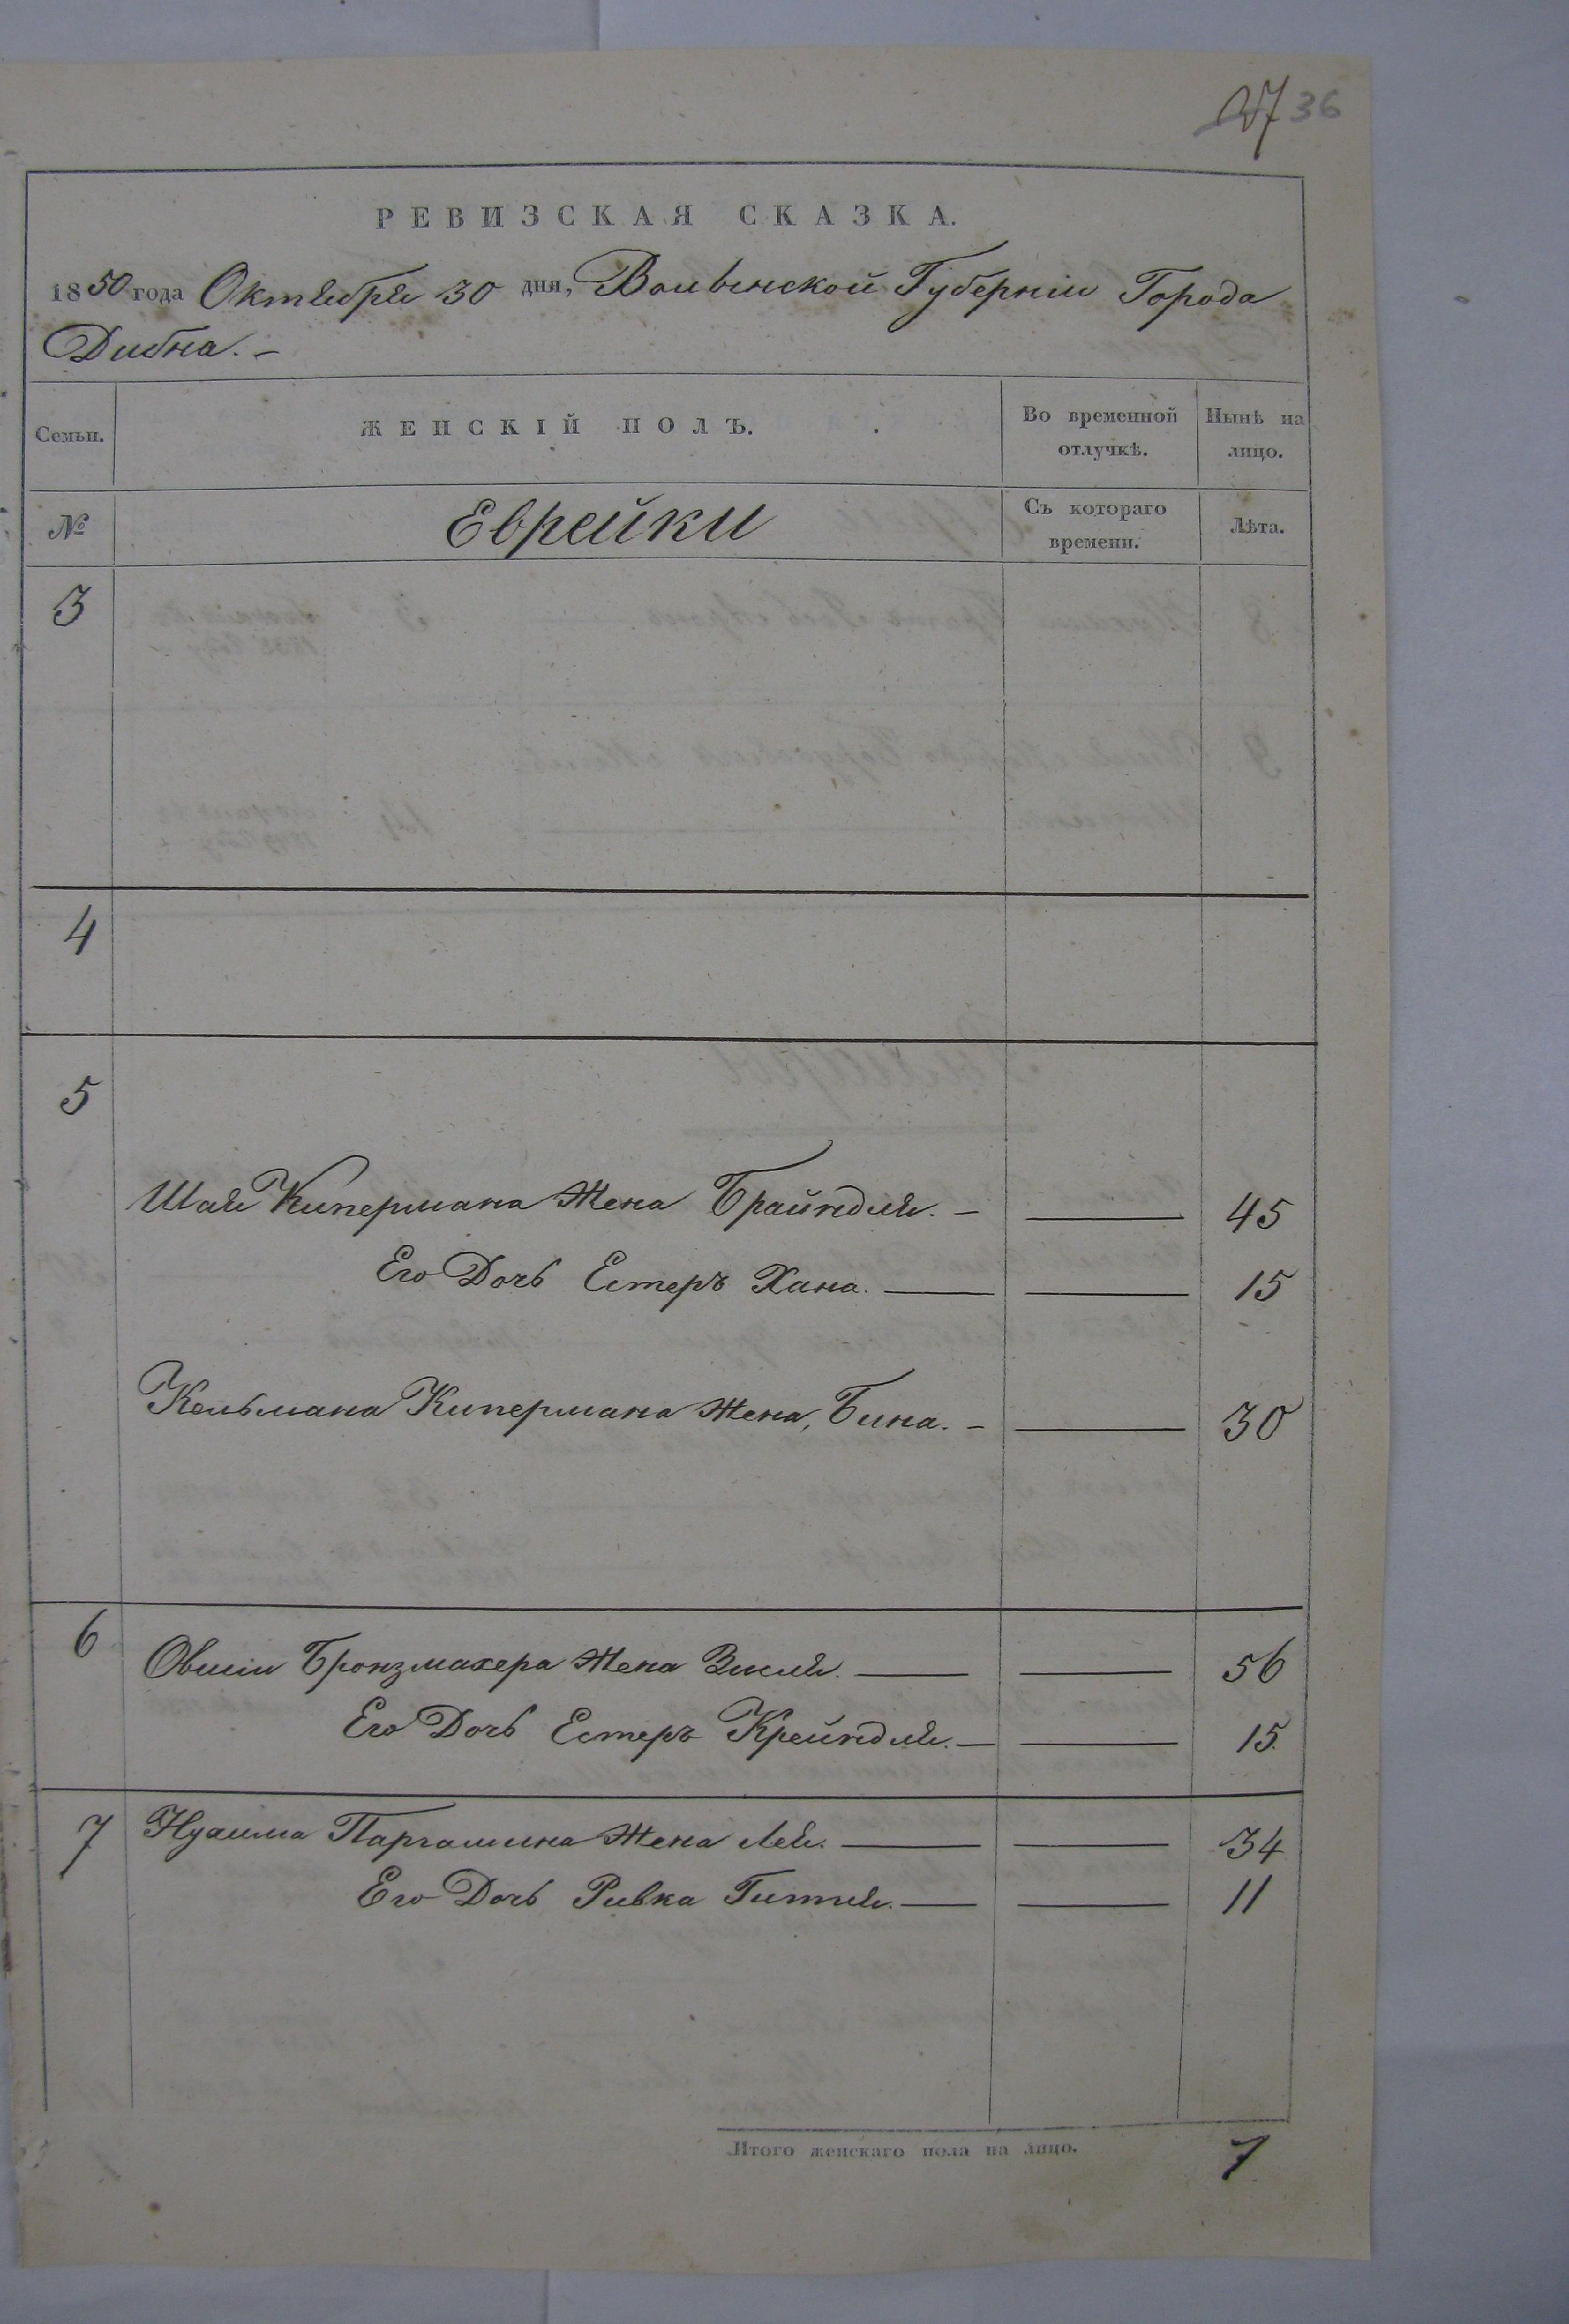 27 36
РЕВИЗСКАЯ СКАЗКА.
1850 года Октября 30 дня, Волынской Губерніи Города
Дубна. –
Семьи. ЖЕНСКІЙ ПОЛЪ. Во временной отлучкѣ. Нынѣ на лицо.
№ Еврейки Съ котораго времени. Лѣта.
3
4
5
Шаи Кипермана Жена Брайндля. – — 45
Его Дочь Естеръ Хана. — — 15
Кельмана Кипермана Жена, Бина. – — 30
6 Овшіи Бронзмахера Жена Зисля. — — 56
Его Дочь Естеръ Крейндля. — — 15.
7 Нухима Паргамина Жена Лея. — — 34
Его Дочь Ривка Гитля. — — 11
Итого женскаго пола на лицо. 7